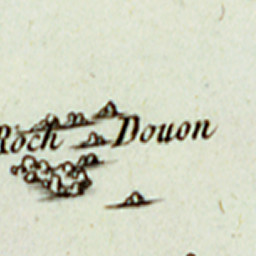 Roch Douon